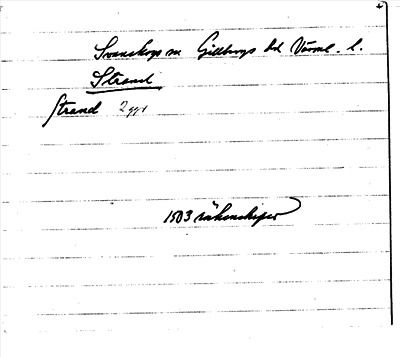 Svanskogs sn Gillbergs hd Värml. l.
Strand
Strand 2 ggr
1503 räkenskaper